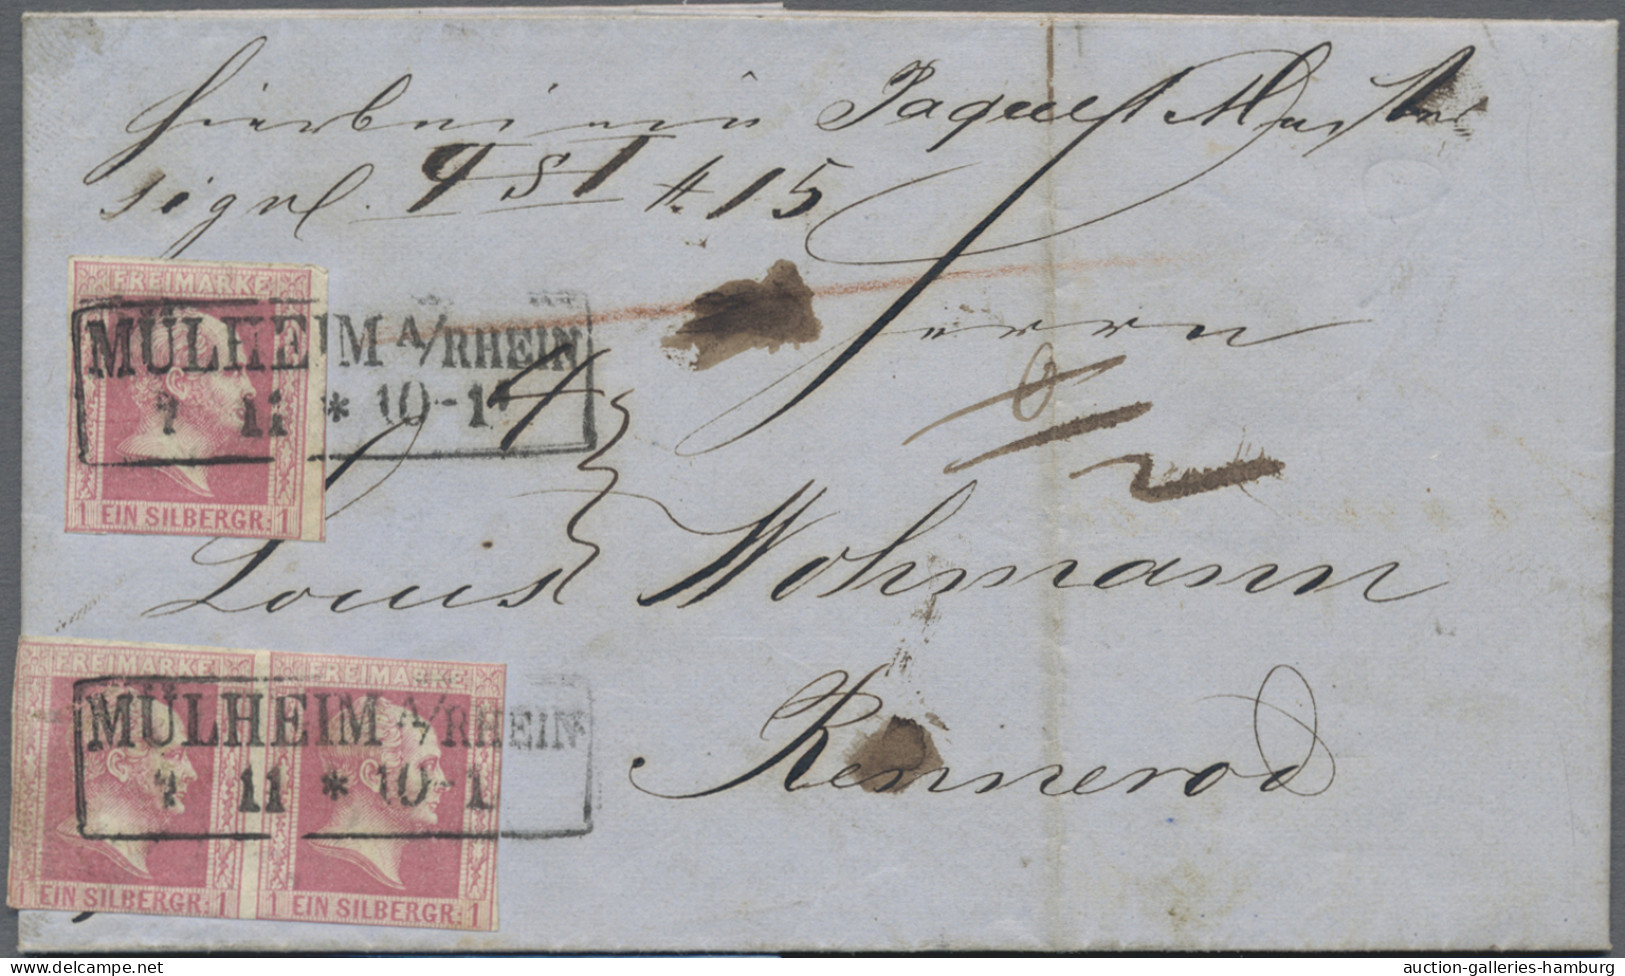 hierbei ein Paquet Muster
sign. 9 S 1 #. 15
FREIMARKE
MÜLHEIM A/RHEIN
7 11 * 10-11
1 EIN SILBERGR: 1
Herrn
Louis Wohmann
Rennerod
FREIMARKE FREIMARKE
MÜLHEIM A/RHEIN
7 11 * 10-1
1 EIN SILBERGR: 1 1 EIN SILBERGR: 1
delcampe.net
auction-galleries-hamburg